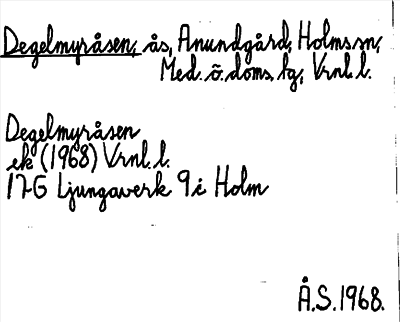 Degelmyråsen, ås, Anundgård, Holms sn,
Med. ö. doms. tg, Vrnl. l.
Degelmyråsen
ek (1968) Vrnl. l.
17G Ljungaverk 9i Holm
Å.S. 1968.